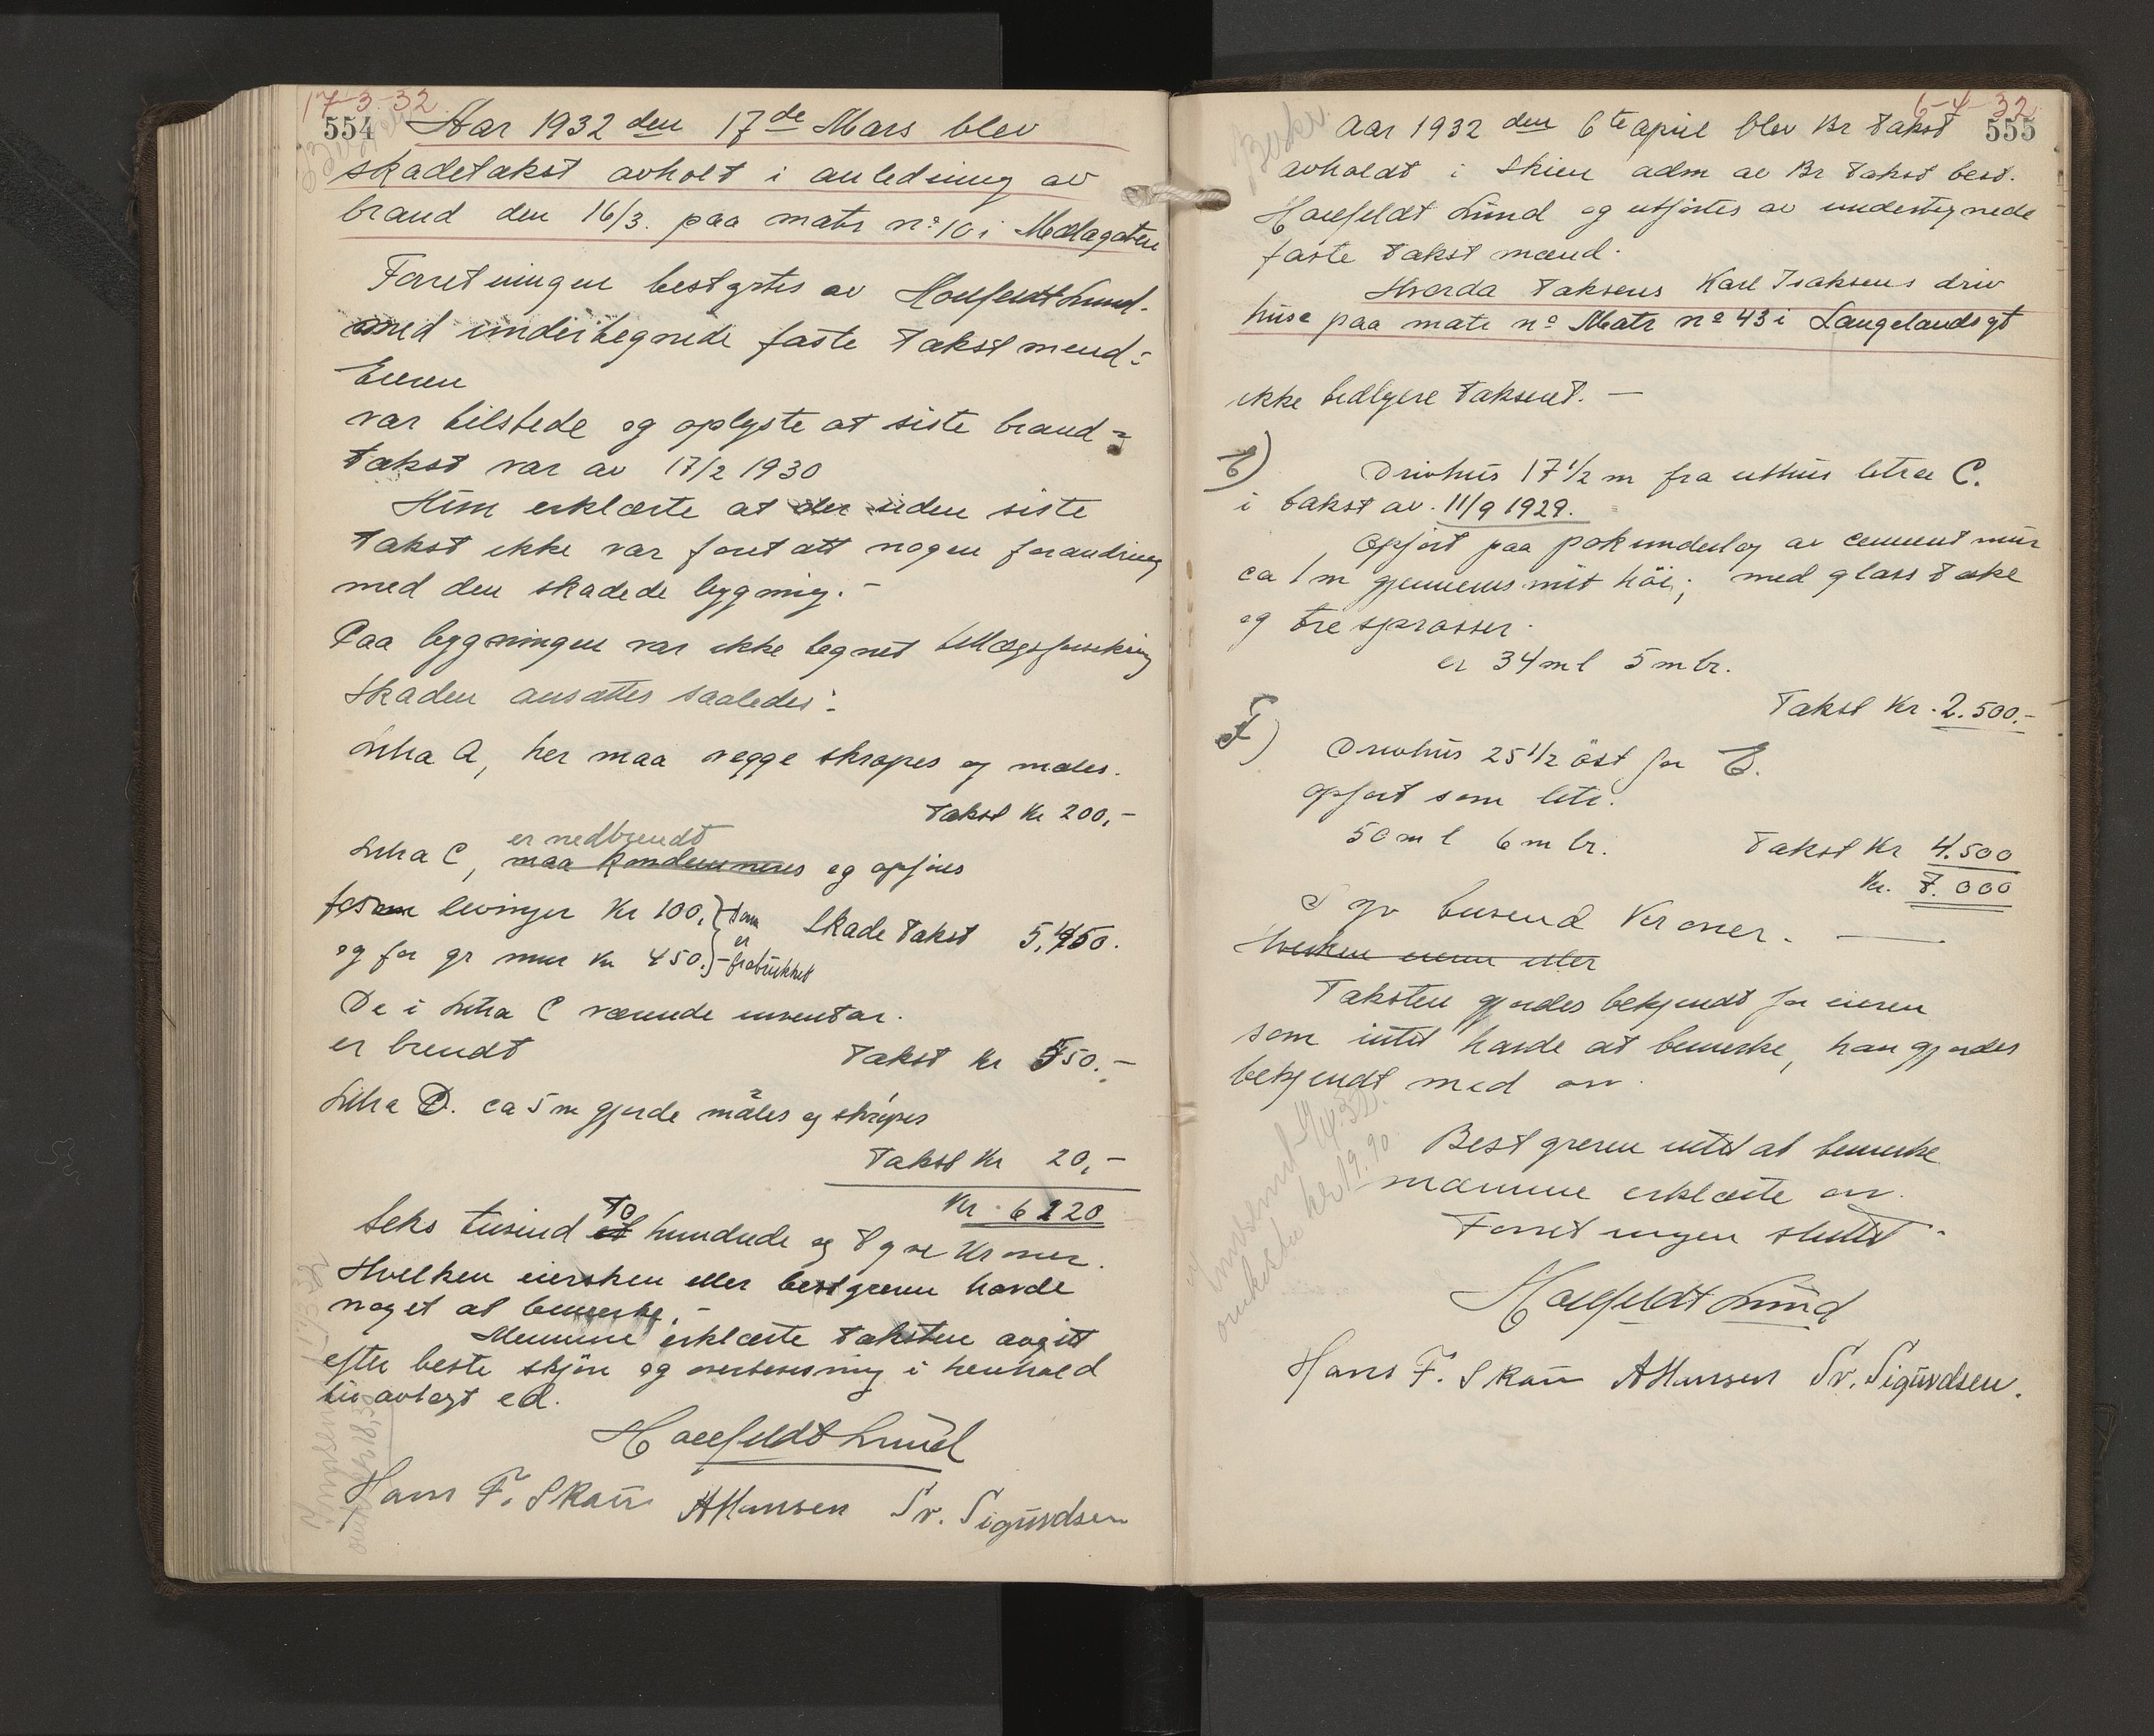 17-3-32
554
Aar 1932 den 17de Mars blev
skadetakst avholt i anledning av
brand den 16/3. paa matr no 10 i Mælagaten
Forretningen bestyrtes av Houfeldt Lund.
med undertegnede faste takstmend:
Eieren
var tilstede og oplyste at siste brand=
takst var av 17/2 1930
Hun erklærte at der siden siste
takst ikke var foretatt nogen forandring
med den skadede bygning.-
Paa bygningen var ikke tegnet tillægsforsikring
Skaden ansættes saaledes:
Litra A, her maa vegge skrapes og males.
Takst Kr 200,-
er nedbrendt
Litra C, maa kondemneres og opføres
for levninger Kr 100,- som Skade takst 5,450.
er
og for gr mur Kr 450.- fratrukket
De i Litra C værende inventar.
er brendt Takst Kr 550.-
Litra D. ca 5 m gjerde måles og skrapes
Takst Kr 20,-
Kr. 6220
to
Seks tusind et hundrede og tyve Kroner.
Hvilken eiersken eller bestyreren havde
noget at bemerke.-
Mennene erklærte taksten avgitt
efter beste skjøn og overbevisning i henhold
til avlagt ed.
Houfeldt Lund
Hans F. Skau AHansen Sv. Sigurdsen
6-4-32
555
Beskr.
Aar 1932 den 6te april blev Br takst
avholdt i Skien adm av Br takst best.
Houfeldt Lund og utførtes av undertegnede
faste takst mænd.
Hvorda taksers Karl Isaksens driv
huse paa mate no Matr no 43 i Langelandsgt
ikke tidligere taksert.-
E)
Drivhus 17 1/2 m fra uthus litra C.
i takst av. 11/9 1929.
Opført paa pokunderlag av cement mur
ca 1 m gjennemsnit høi; med glass take
og tre sprosser.
er 34 m l 5 m br.
Takst Kr. 2.500.-
F)
Drivhus 25 1/2 öst for E.
opført som litr.
50 m l 6 m br. Takst Kr 4.500
Kr. 7.000
Syv tusend Kroner.-
Hverken eieren eller
Taksten gjordes bekjendt for eieren
som intet havde at bemerke, han gjordes
bekjendt med ov.
Bestyreren intet at bemerke
mænnene erklærte ov.
Forretningen sluttet.
Houfeldt Lund
Hans F. Skau AHansen Sv. Sigurdsen.